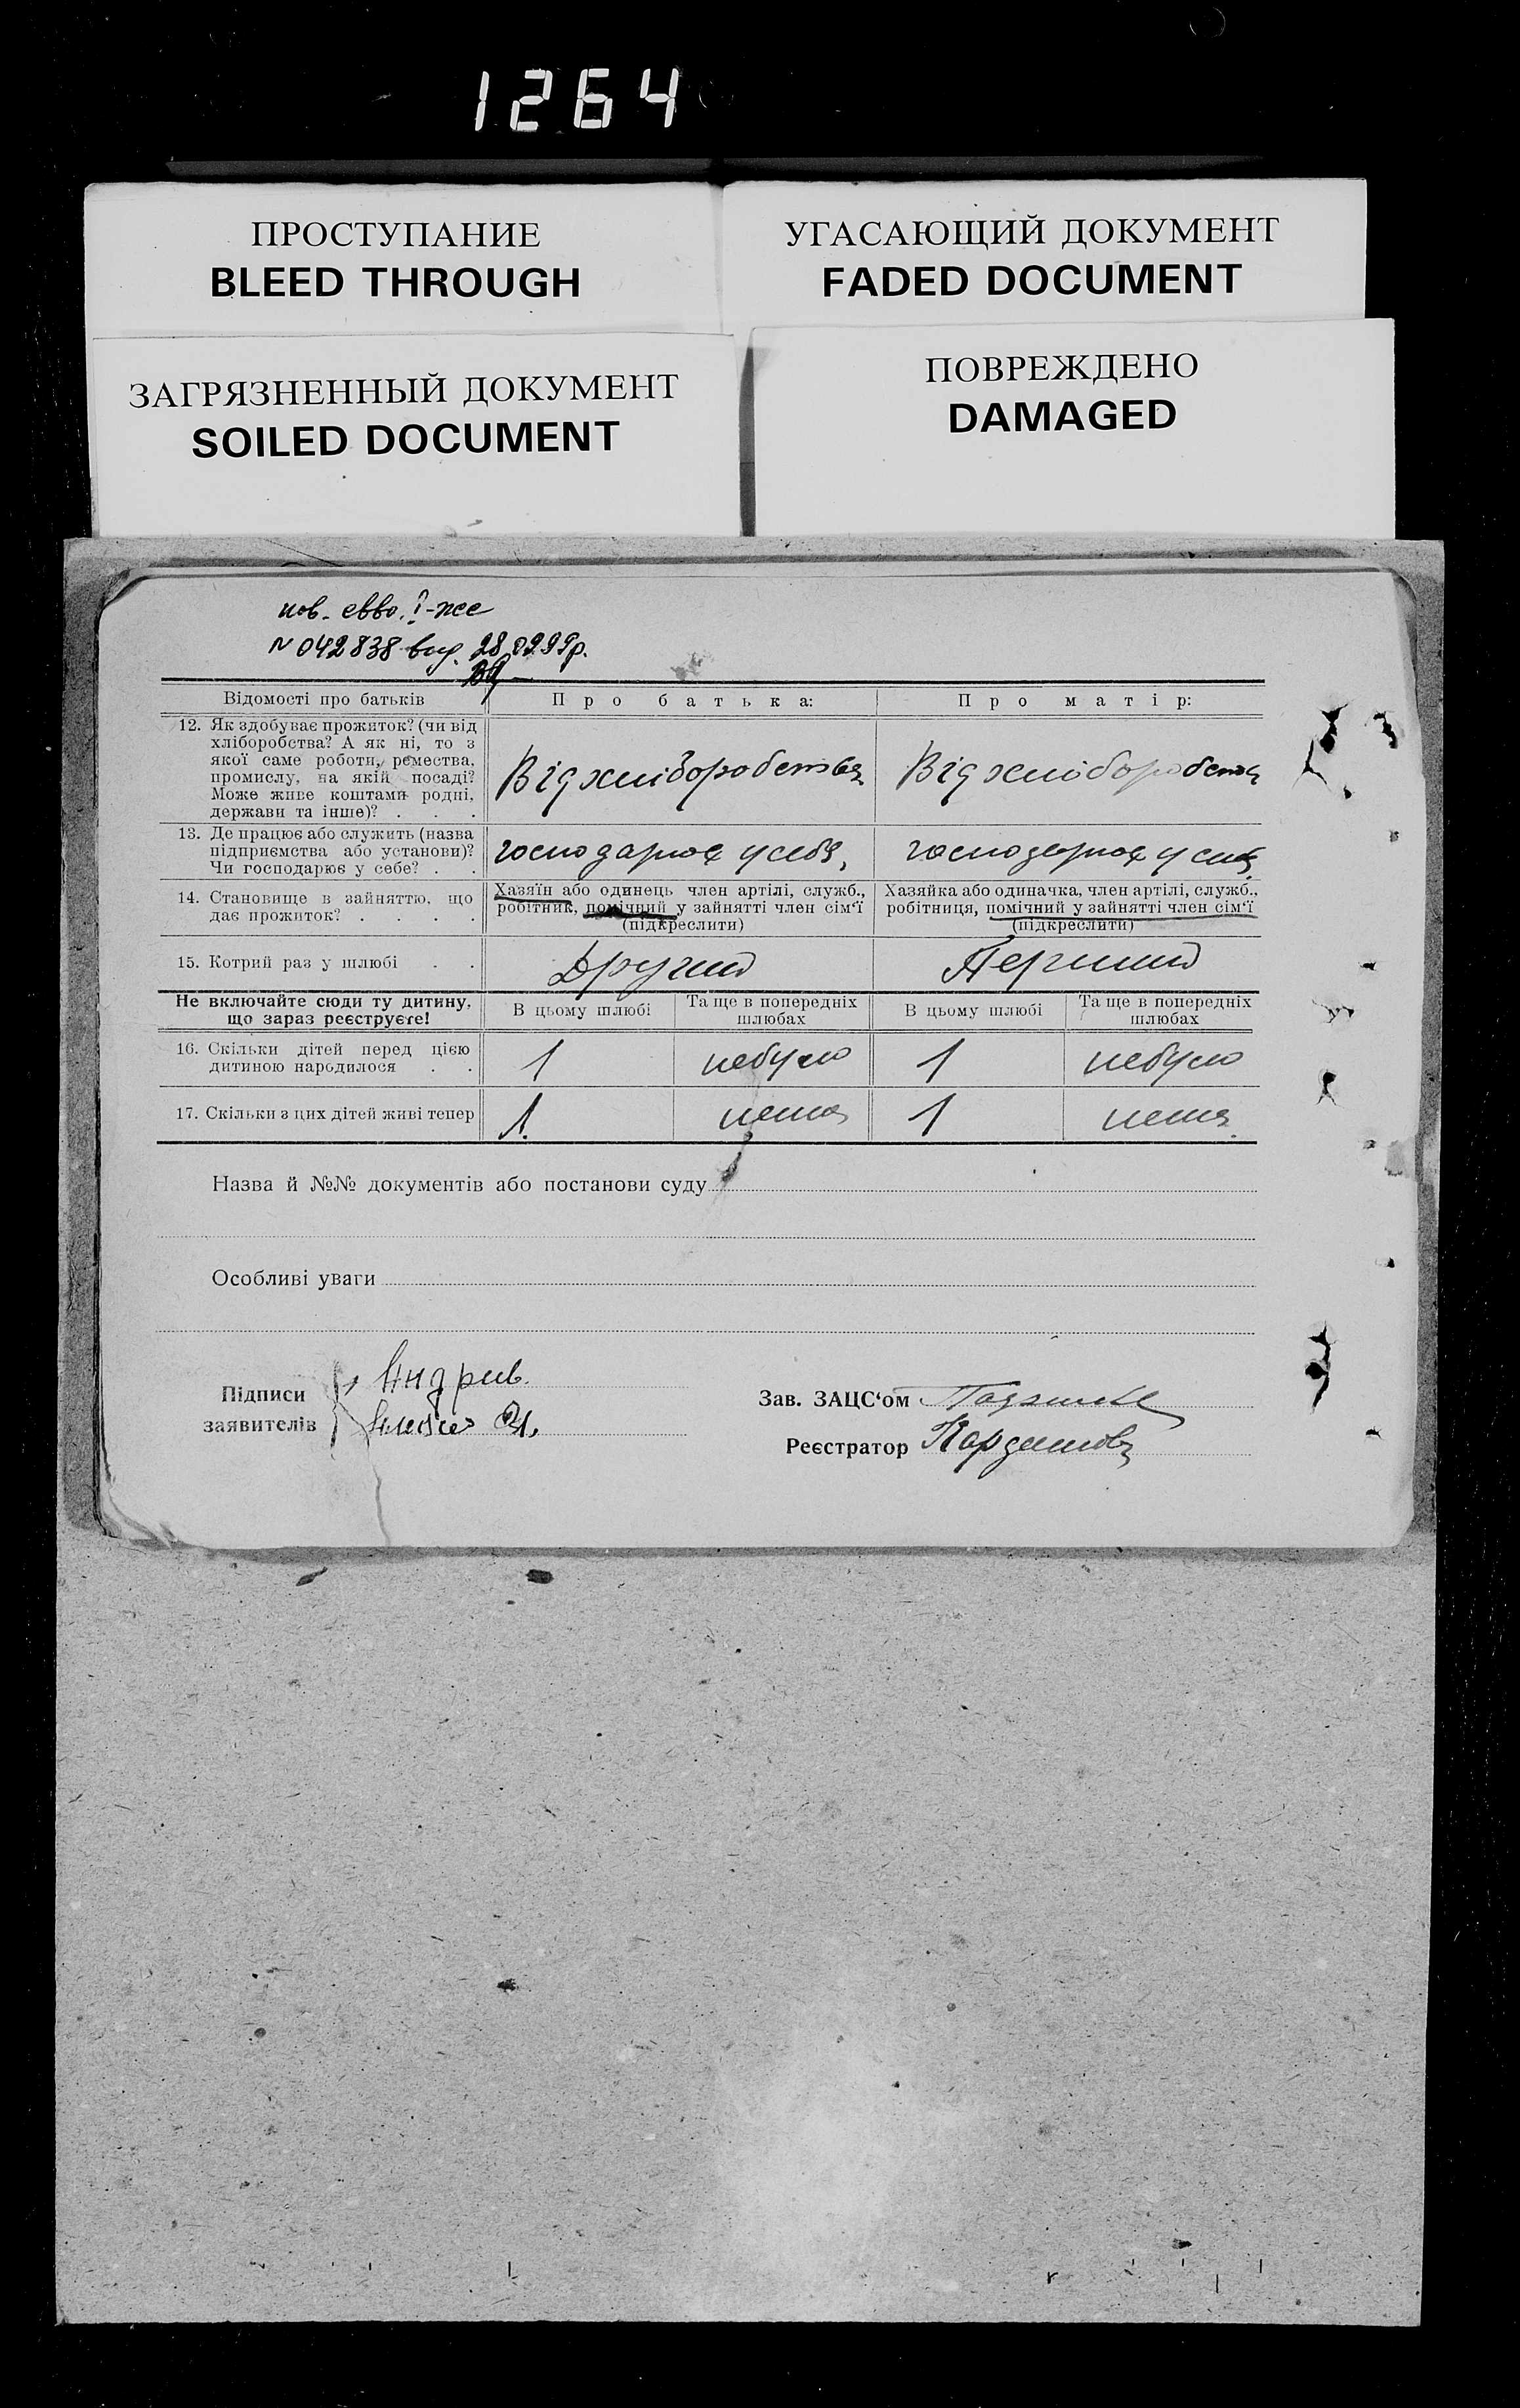 1264
ПРОСТУПАНИЕ
BLEED THROUGH
УГАСАЮЩИЙ ДОКУМЕНТ
FADED DOCUMENT
ЗАГРЯЗНЕННЫЙ ДОКУМЕНТ
SOILED DOCUMENT
ПОВРЕЖДЕНО
DAMAGED
пов. свво. І-жс
№ 042838 вид. 28.02.99р.
Відомості про батьків
Про батька:
Про матір:
12. Як здобуває прожиток? (чи від
хліборобства? А як ні, то з
якої саме роботи, ремества,
промислу, на якій посаді?
Може живе коштами родні,
держави та інше)? . . .
Від хліборобства
Від хліборобства
13. Де працює або служить (назва
підприємства або установи)?
Чи господарює у себе? . .
господарює у себе,
господарює у
14. Становище в зайняттю, що
дає прожиток? . . . .
Хазяїн або одинець член артілі, служб.,
робітник, помічний у зайнятті член сім'ї
(підкреслити)
Хазяйка або одиначка, член артілі, служб.,
робітниця, помічний у зайнятті член сім'ї
(підкреслити)
15. Котрий раз у шлюбі . .
Другий
Перший
Не включайте сюди ту дитину,
що зараз реєструєте!
В цьому шлюбі
Та ще в попередніх
шлюбах
В цьому шлюбі
Та ще в попередніх
шлюбах
16. Скільки дітей перед цією
дитиною народилося . .
1
небуло
1
небуло
17. Скільки з цих дітей живі тепер
1.
нема
1
нема.
Назва й №№ документів або постанови суду
Особливі уваги
Підписи
заявителів
Зав. ЗАЦС'ом
Реєстратор